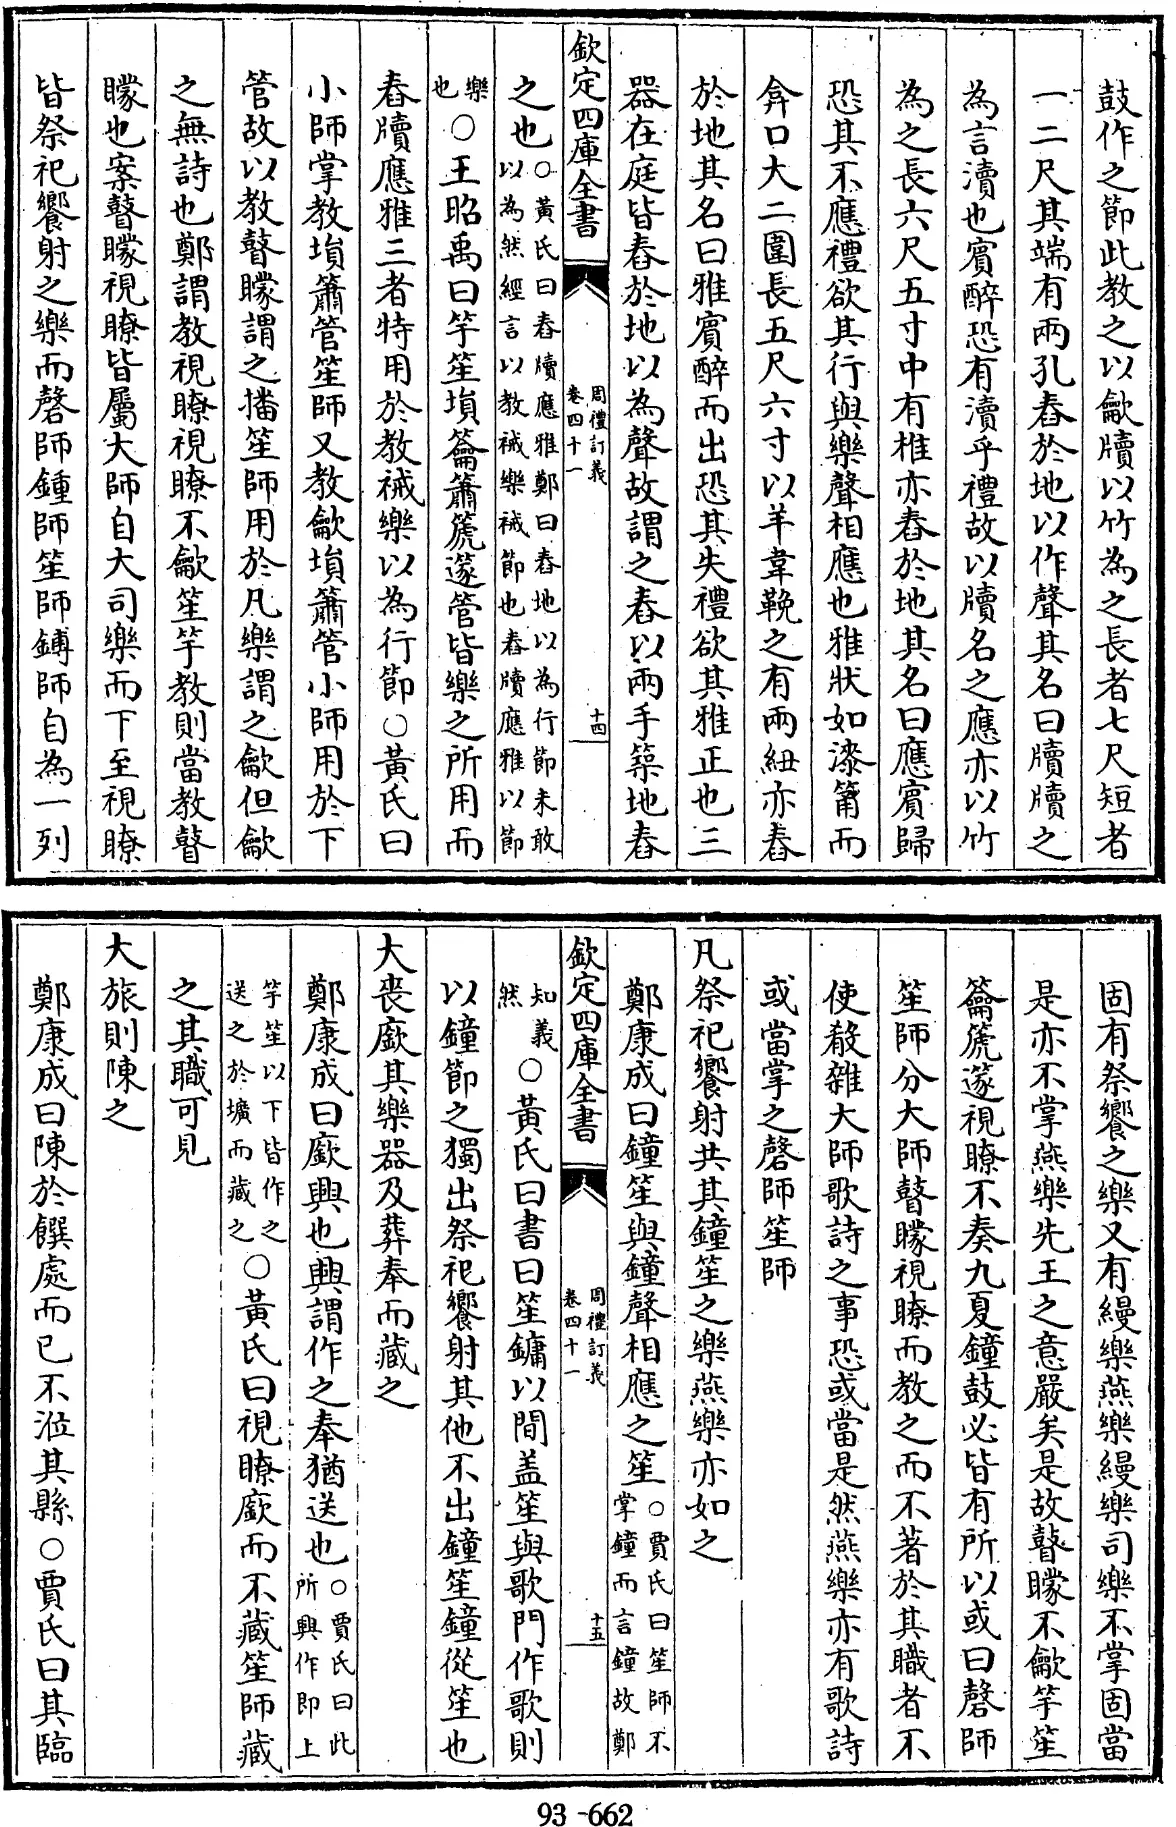 鼓作之節此教之以龡牘以竹為之長者七尺短者
一二尺其端有兩孔舂於地以作聲其名曰牘牘之
為言瀆也賓醉恐有瀆乎禮故以牘名之應亦以竹
為之長六尺五寸中有椎亦舂於地其名曰應賓歸
恐其不應禮欲其行與樂聲相應也雅狀如漆筩而
弇口大二圍長五尺六寸以羊韋鞔之有兩紐亦舂
於地其名曰雅賓醉而出恐其失禮欲其雅正也三
器在庭皆舂於地以為聲故謂之舂以兩手築地舂
欽定四庫全書
周禮訂義
卷四十一
十四
之也○黃氏曰舂牘應雅鄭曰舂地以為行節未敢
以為然經言以教祴樂祴節也舂牘應雅以節
樂
也○王昭禹曰竽笙塤籥簫篪篴管皆樂之所用而
舂牘應雅三者特用於教祴樂以為行節○黃氏曰
小師掌教塤簫管笙師又教龡塤簫管小師用於下
管故以教瞽矇謂之播笙師用於凡樂謂之龡但龡
之無詩也鄭謂教視瞭視瞭不龡笙竽教則當教瞽
矇也案瞽矇視瞭皆屬大師自大司樂而下至視瞭
皆祭祀饗射之樂而磬師鍾師笙師鎛師自為一列
固有祭饗之樂又有縵樂燕樂縵樂司樂不掌固當
是亦不掌燕樂先王之意嚴矣是故瞽矇不龡竽笙
籥篪篴視瞭不奏九夏鐘鼓必皆有所以或曰磬師
笙師分大師瞽矇視瞭而教之而不著於其職者不
使殽雜大師歌詩之事恐或當是然燕樂亦有歌詩
或當掌之磬師笙師
凡祭祀饗射共其鐘笙之樂燕樂亦如之
鄭康成曰鐘笙與鐘聲相應之笙○賈氏曰笙師不
掌鐘而言鐘故鄭
欽定四庫全書
周禮訂義
卷四十一
十五
知義
然○黃氏曰書曰笙鏞以間盖笙與歌門作歌則
以鐘節之獨出祭祀饗射其他不出鐘笙鐘從笙也
大喪廞其樂器及葬奉而藏之
鄭康成曰廞興也興謂作之奉猶送也○賈氏曰此
所興作即上
竽笙以下皆作之
送之於壙而藏之○黃氏曰視瞭廞而不藏笙師藏
之其職可見
大旅則陳之
鄭康成曰陳於饌處而已不涖其縣○賈氏曰其臨
93-662